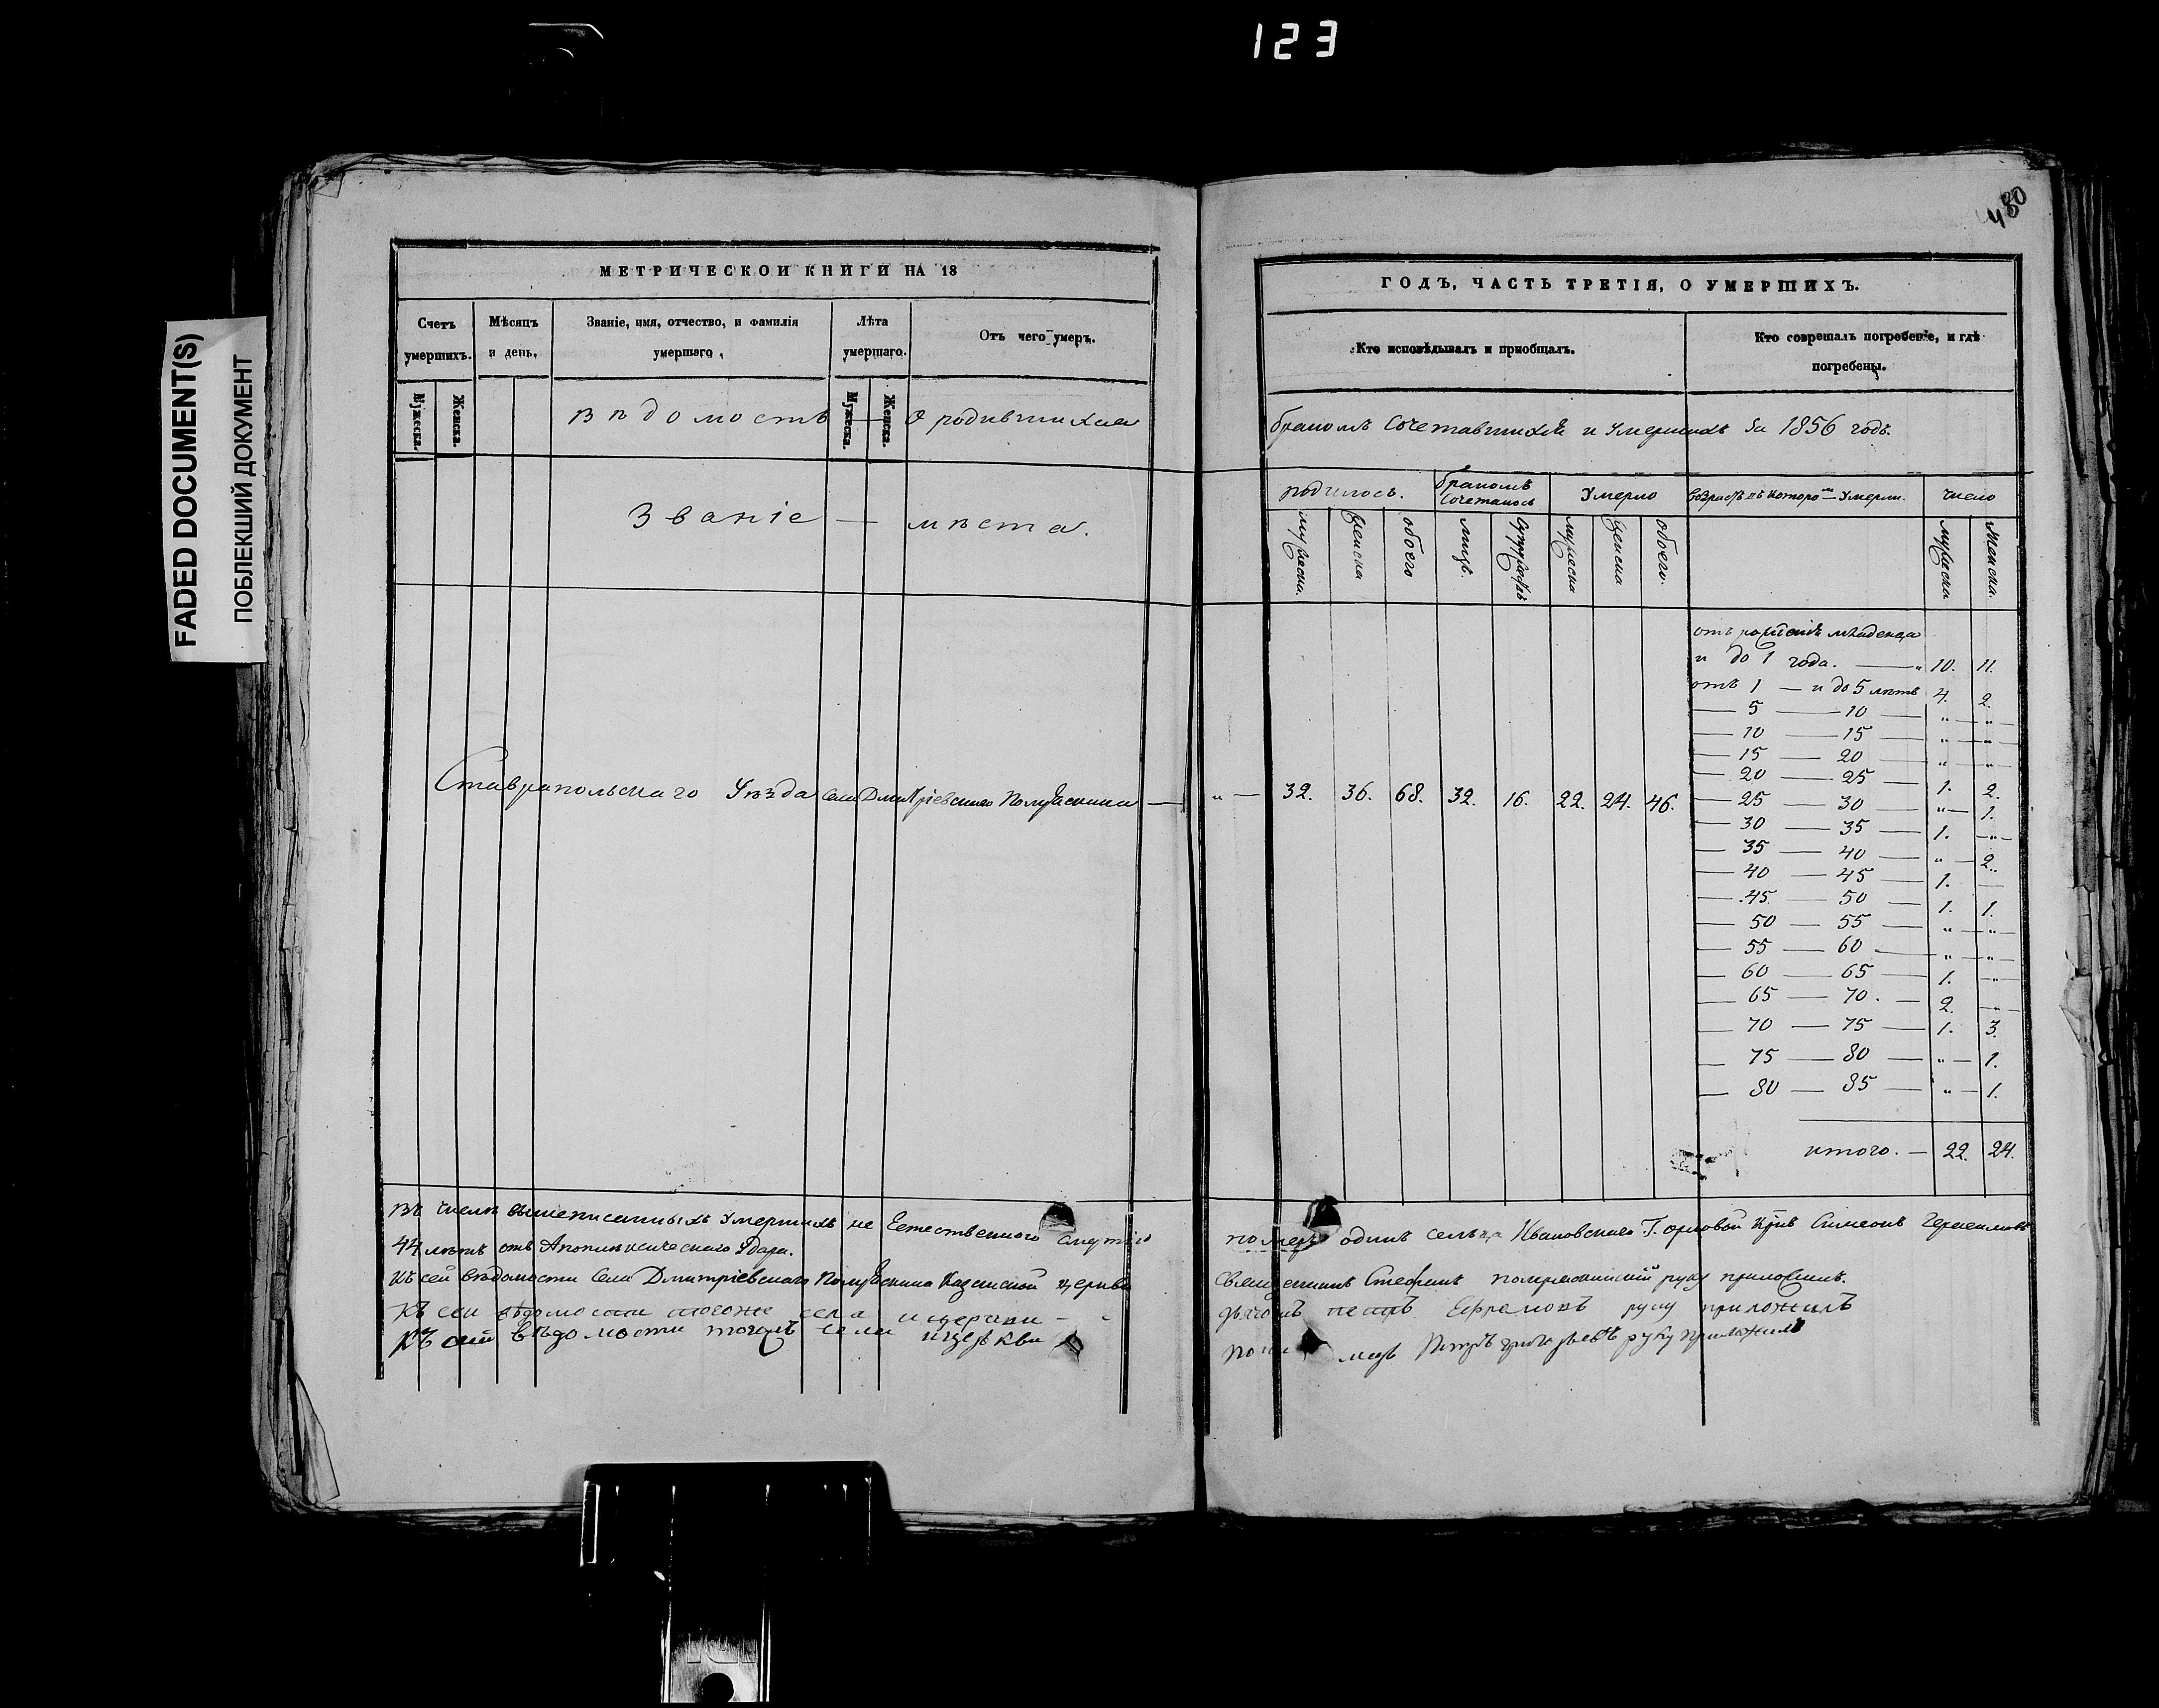 123
480
FADED DOCUMENT(S)
ПОБЛЕКШИЙ ДОКУМЕНТ
МЕТРИЧЕСКОЙ КНИГИ НА 18
Счетъ умершихъ.
Мѣсяцъ и день.
Званіе, имя, отчество, и фамилія умершаго.
Лѣта умершаго.
Отъ чего умеръ.
Мужеска.
Женска.
Мужеска.
Женска.
Вѣдомость — о родившихся
Званіе — мѣста.
Ставропольскаго Уѣзда села Дмитріевскаго Помряскина —
Въ числѣ вышеписанныхъ умершихъ не Естественною смертію
44 лѣтъ отъ Апоплексическаго Удара.
Къ сей вѣдомости Села Дмитріевскаго Помряскина Казанской церкви
Къ сей вѣдомости тогоже села и церкви
Къ сей вѣдомости тогожъ села и церкви
ГОДЪ, ЧАСТЬ ТРЕТІЯ, О УМЕРШИХЪ.
Кто исповѣдывалъ и пріобщалъ.
Кто совершалъ погребеніе, и гдѣ погребены.
бракомъ Сочетавшихся и Умершихъ За 1856 годъ.
родилось.
бракомъ Сочеталось
Умерло
возрастъ въ которомъ Умерли.
число
мужеска.
женска
обоего
лицъ.
Супружествъ
мужеска
женска
обоего.
мужеска
Женска.
„ — 32. 36. 68. 32. 16. 22. 24. 46.
отъ рожденія младенца
и до 1 года. — „ 10. 11.
отъ 1 — и до 5 лѣтъ 4. 2.
— 5 — 10 — „ — „ —
— 10 — 15 — „ — „ —
— 15 — 20 — „ — „ —
— 20 — 25 — 1. 2.
— 25 — 30 — „ — 1.
— 30 — 35 — 1. — „ —
— 35 — 40 — „ — 2.
— 40 — 45 — 1. —
— 45 — 50 — 1. 1.
— 50 — 55 — „ — „ —
— 55 — 60 — „ — „ —
— 60 — 65 — 1. — „
— 65 — 70. — 2. — „ —
— 70 — 75 — 1. 3.
— 75 — 80 — „ — 1.
— 80 — 85 — „ — 1.
итого. — 22. 24.
померъ одинъ сельца Ивановскаго Г. Симеонъ Герасимовъ
Священникъ Стефанъ Помряскинскій руку приложилъ.
дьячокъ Ефремовъ руку приложилъ
руку приложилъ